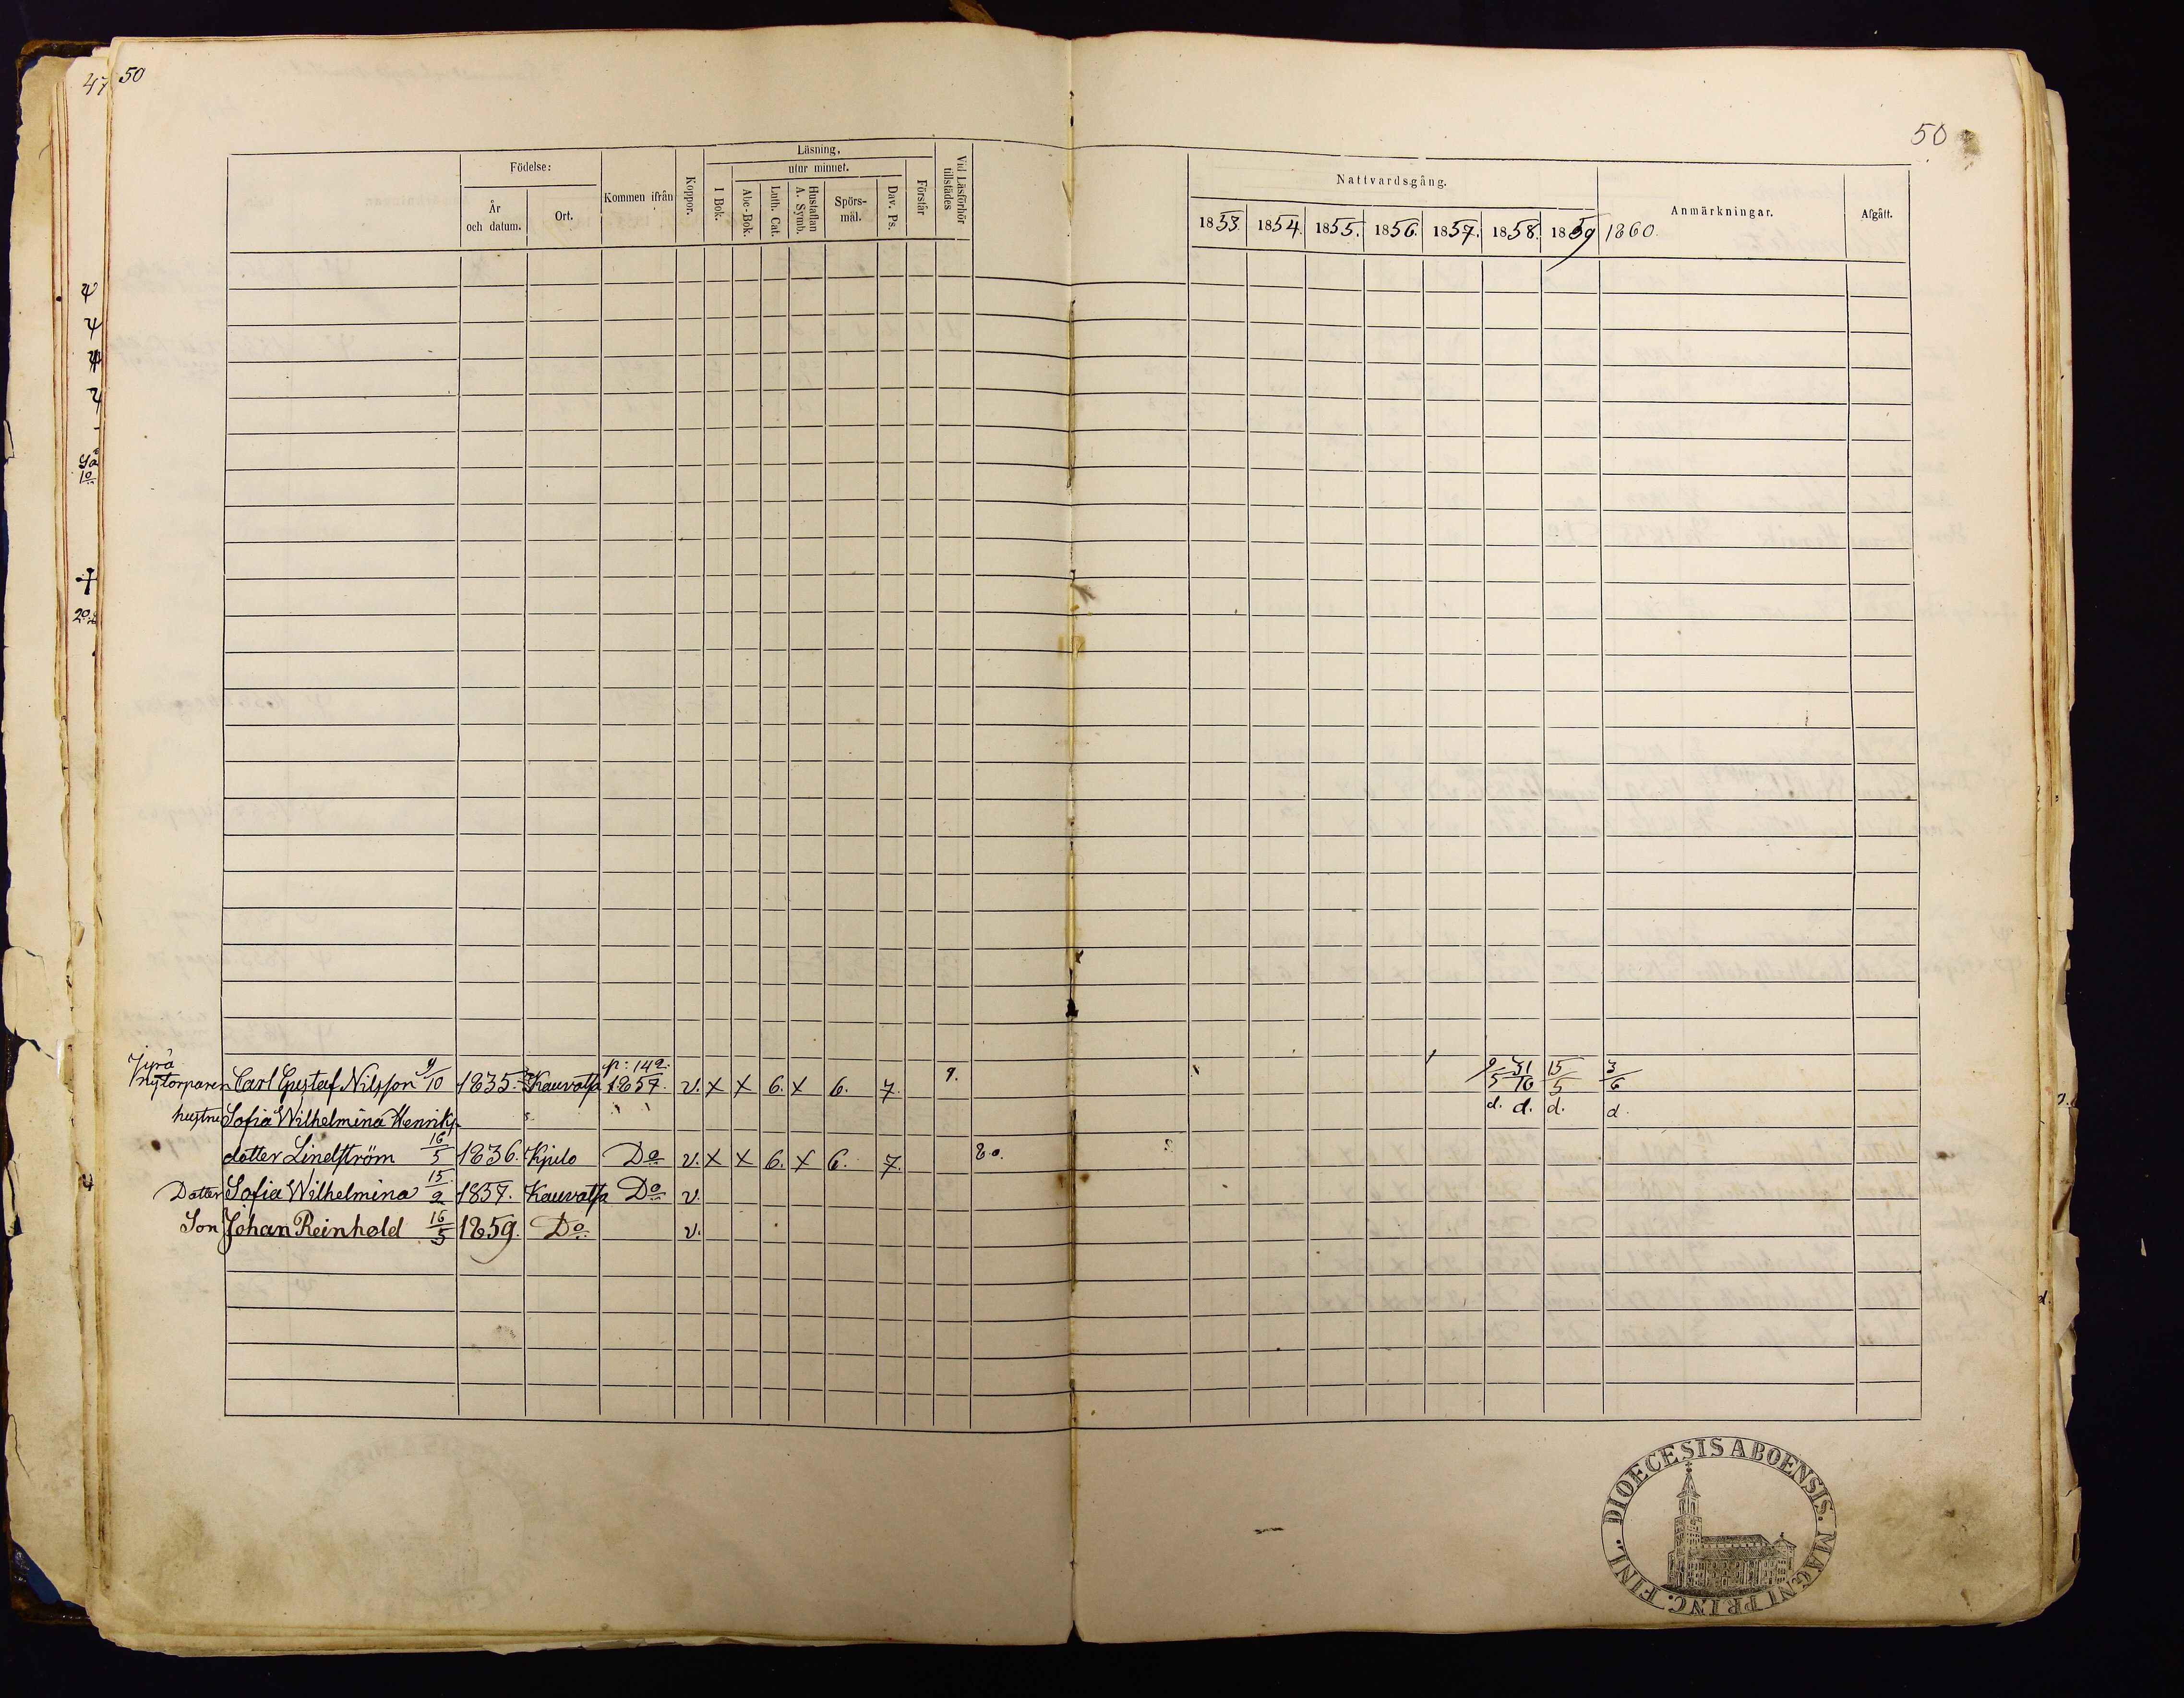 47
50
50
Födelse:
År
och datum.
Ort.
Kommen ifrån
Koppor.
Läsning,
I Bok.
utur minnet.
Abc-Bok.
Luth. Cat.
Hustaflan
A. Symb.
Spörs-
mål.
Dav. Ps.
Förstår
Vid Läsförhör
tillstädes
Nattvardsgång.
1853. 1854. 1855. 1856. 1857. 1858. 1859 1860.
Anmärkningar.
Afgått.
nytorparen Carl Gustaf Nilsson 9/10 1835. Kauvatsa p: 142. 1857. v. x x 6. x 6. 7. 9. 9/5 31/10 15/5 3/6
hustru Sofia Wilhelmina Henriks- d. d. d. d.
dotter Lindström 16/5 1836. Kjulo Do v. x x 6. x 6. 7. 80.
Dotter Sofia Wilhelmina 15/2 1857. Kauvatsa Do v.
Son Johan Reinhold 16/5 1859. Do v.
DIOECESIS ABOENSIS. MAGNI PRINC. FINL.